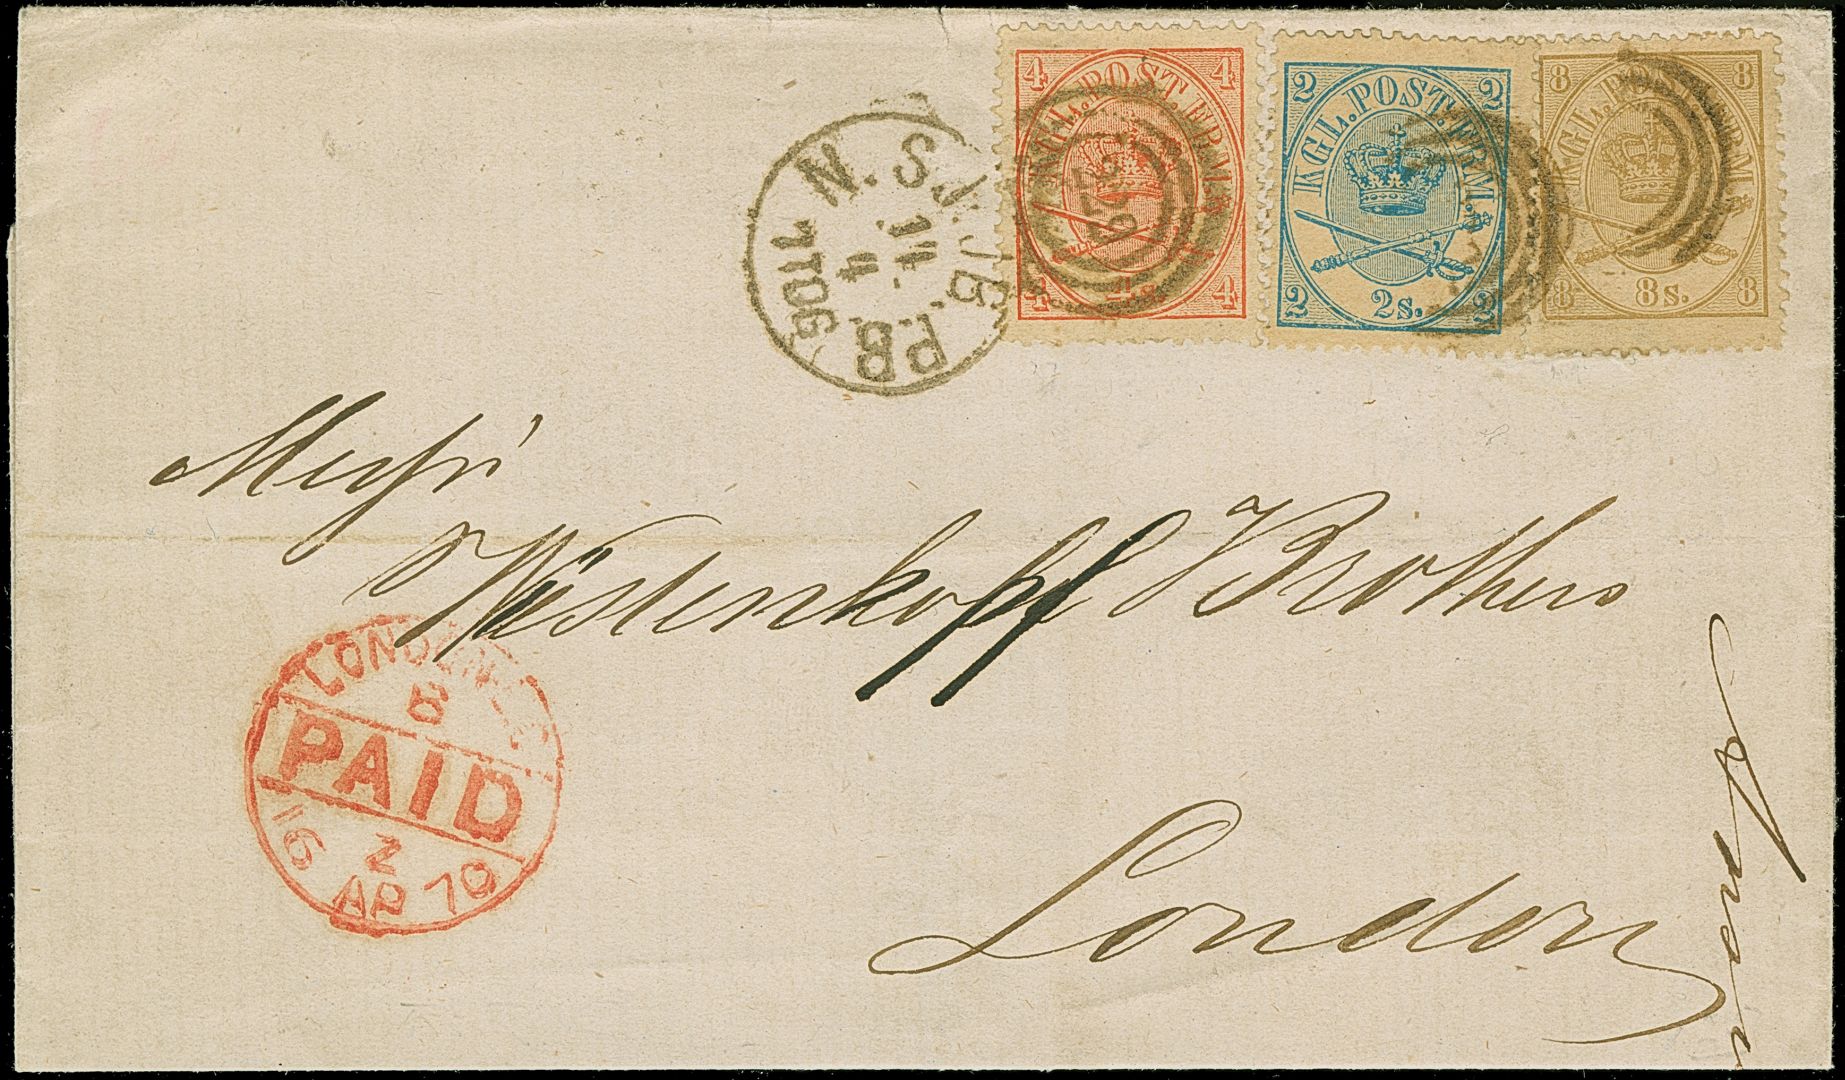 4 4
KGL. POST. FRM.
4 4s. 4
2 2
KGL. POST. FRM.
2 2s. 2
8 8
KGL. POST. FRM.
8 8s. 8
N. S. J. JB P.B
11
4
TOG
Messrs
Westenholz Brothers
London
franco
LONDON
B
PAID
2
16 AP 70